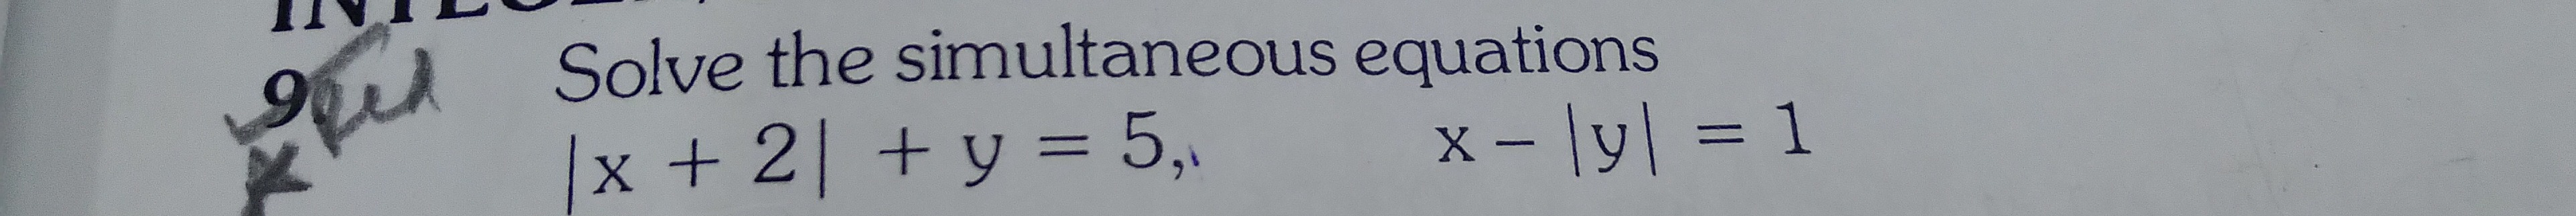 9. Solve the simultaneous equations
|x + 2| + y = 5, x – |y| = 1